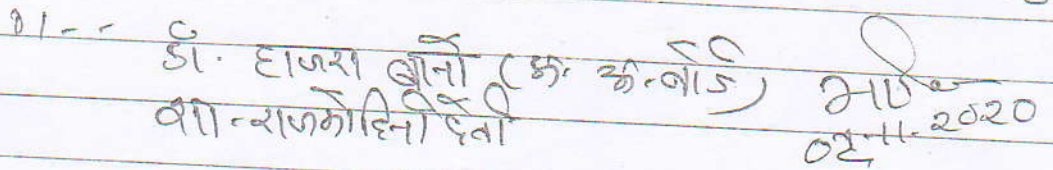 डॉ. हाजरा बानो (क. क. बोर्ड)
शा - राजमोहिनी देवी
02-11-2020